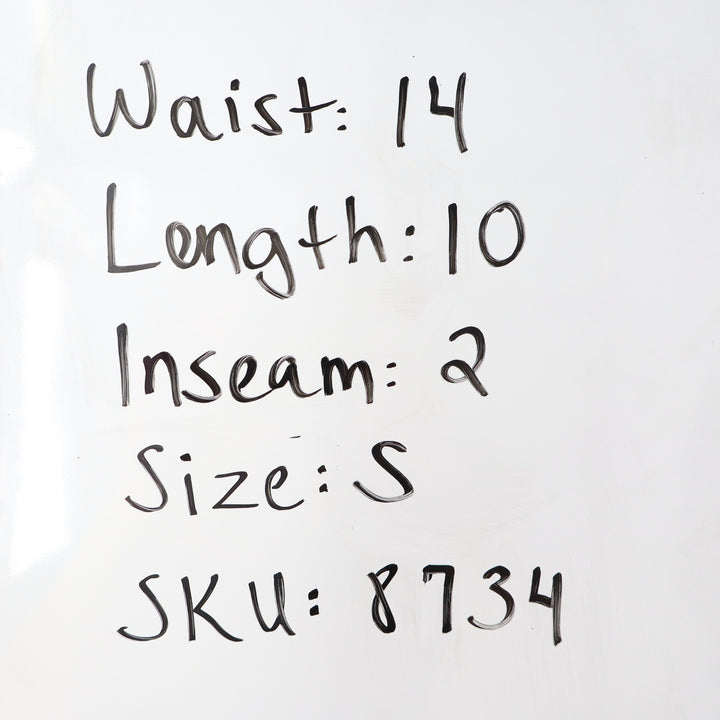 Waist: 14
Length: 10
Inseam: 2
Size: S
SKU: 8734